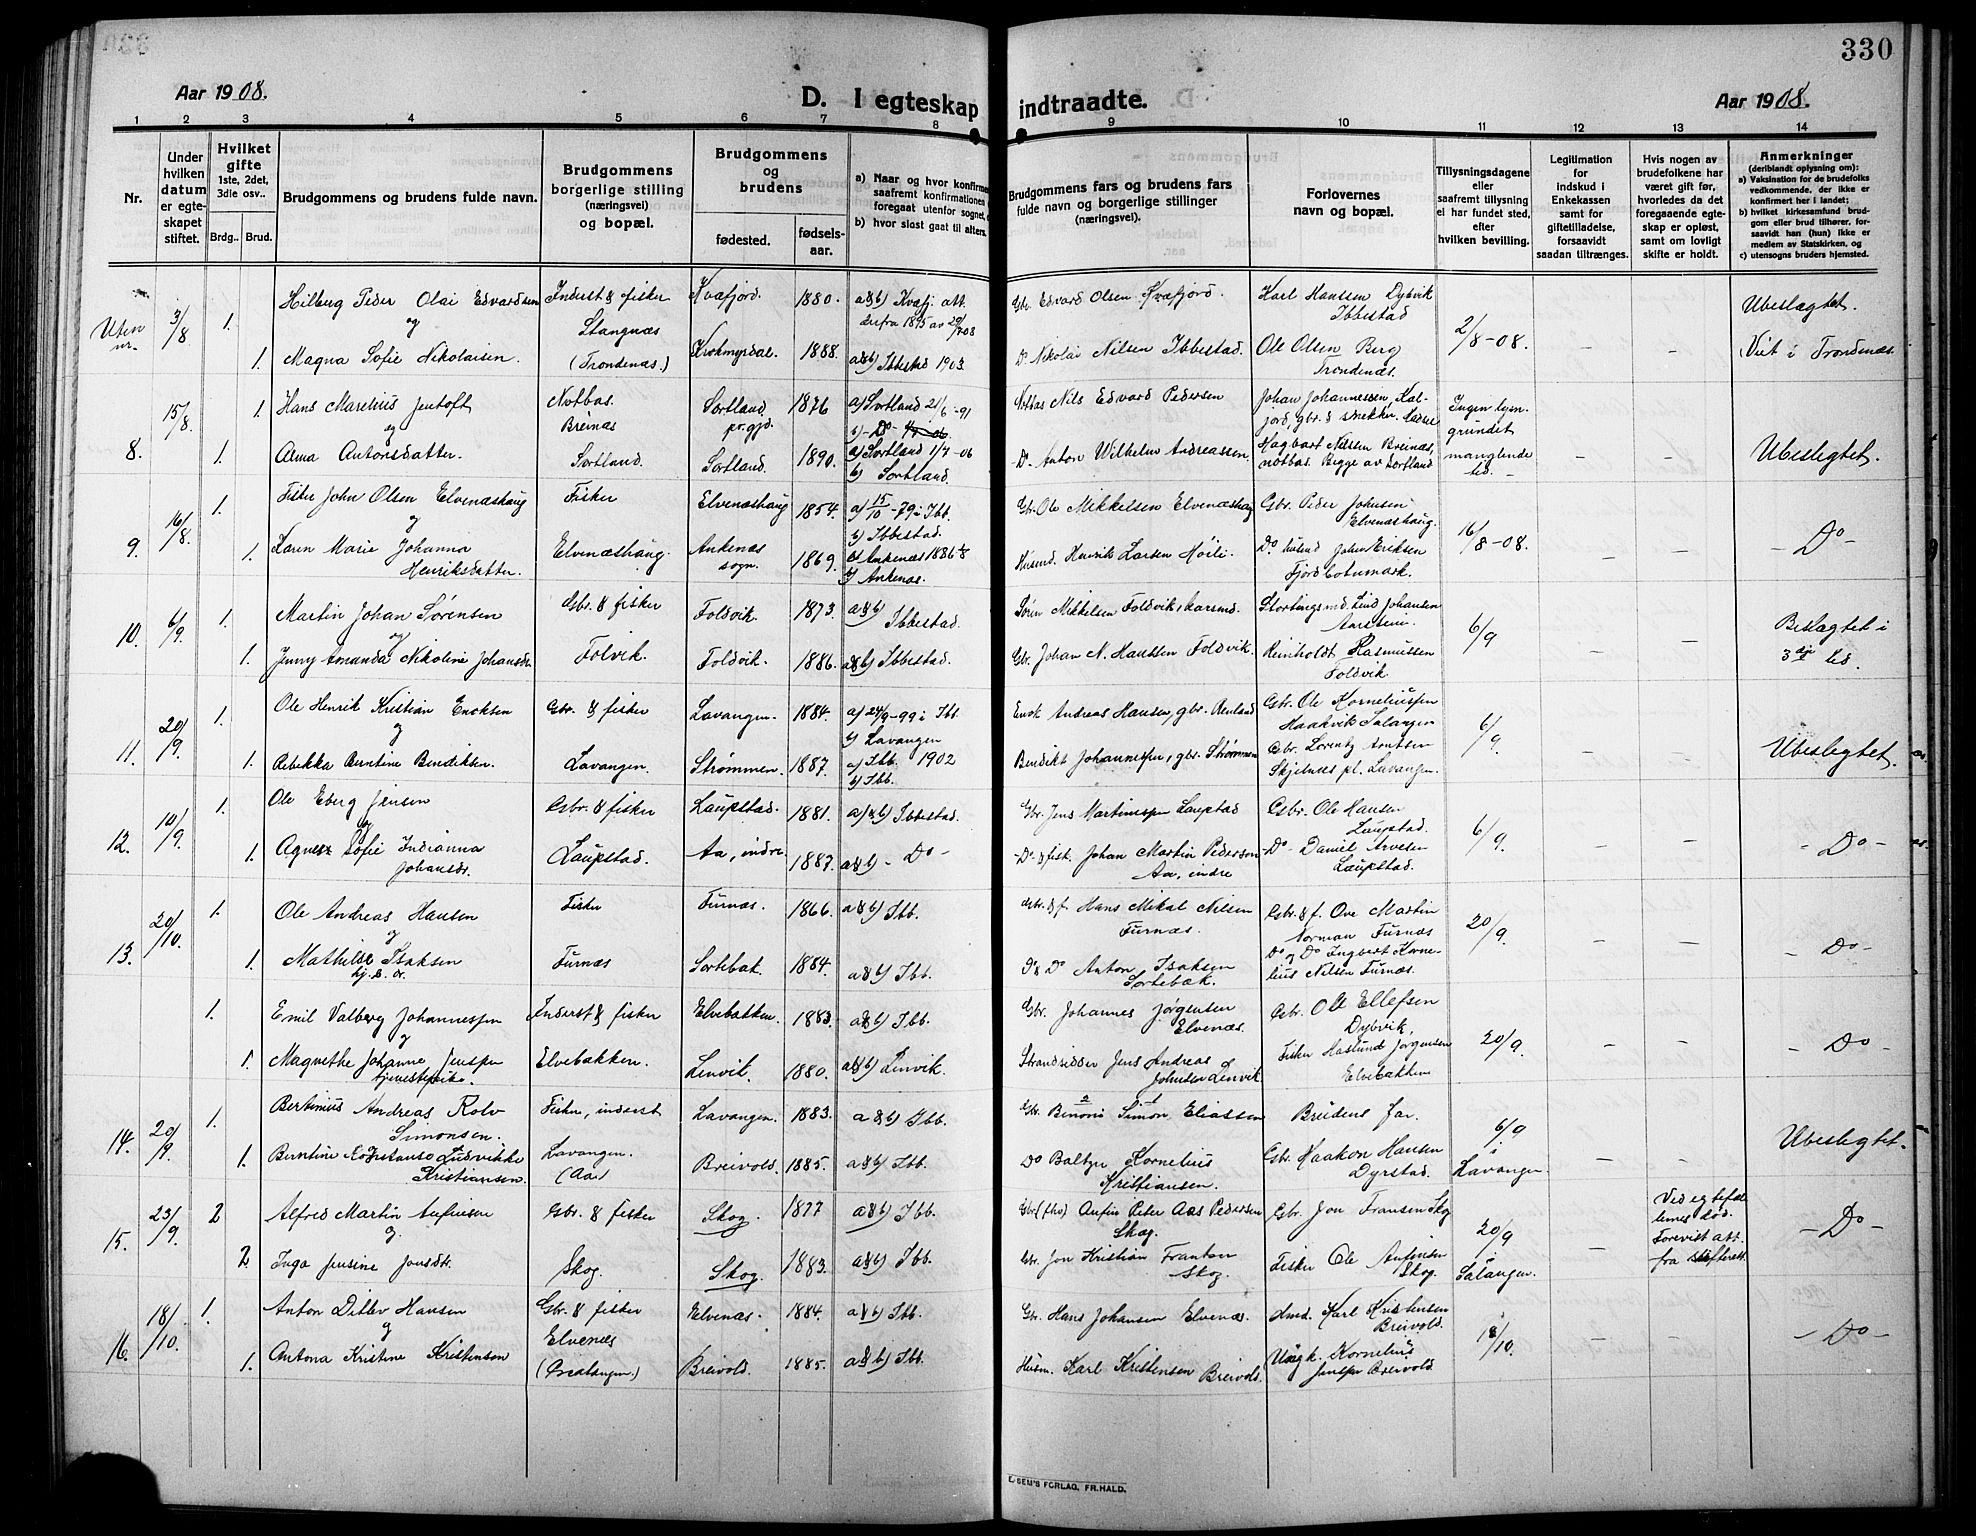 330
Aar 1908.
D. I egteskap indtraadte.
Aar 1908.
1 2 3 4 5 6 7 8 9 10 11 12 13 14
Nr.
Under hvilken datum er egteskapet stiftet.
Hvilket gifte
1ste, 2det, 3die osv..
Brdg.. Brud.
Brudgommens og brudens fulde navn.
Brudgommens borgerlige stilling (næringsvei) og bopæl.
Brudgommens og brudens
fødested.
fødselsaar.
a) Naar og hvor konfirm
saafremt konfirmationen
foregaat utenfor sognet,
b) hvor sidst gaat til alters.
Brudgommens fars og brudens fars
fulde navn og borgerlige stillinger
(næringsvei).
Forlovernes
navn og bopæl.
Tillysningsdagene
eller
saafremt tillysning
ei har fundet sted,
efter
hvilken bevilling.
Legitimation
for
indskud i
Enkekassen
samt for
giftetilladelse,
forsaavidt
saadan tiltrænges.
Hvis nogen av
brudefolkene har
været gift før,
hvorledes da det
foregaaende egteskap er opløst,
samt om lovligt
skifte er holdt.
Anmerkninger
(deriblandt oplysning om):
a) Vaksination for de brudefolks
vedkommende, der ikke er
konfirmert her i landet;
b) hvilket kirkesamfund brudgom eller brud tilhører, forsaavidt han (hun) ikke er
medlem av Statskirken, og
c) utensogns bruders hjemsted.
Uten nr. 3/8 1. Hilberg Peder Olai Edvardsen Inderst & fisker Kvæfjord. 1880. a&b) Kvæfj. att. Gbr. Edvard Olsen Kvæfjord. Karl Hanssen Dybvik Ubeslægtet.
og Stangnæs derfra 1895 av Ibbestad 2/8-08.
1. Magna Sofie Nikolaisen. (Trondenæs.) Krokmyrdal. 1888. a&b) Ibbestad 1903. Do Nikolai Nilsen Ibbestad. Ole Olsen Berg Viet i Trondenæs.
Trondenæs.
8. 15/8 1. Hans Marelius Jentoft Notbas Sortland 1876 a) Sortland 21/6-91 Notbas Nils Edvard Pedersen Johan Johannessen, Kaljord, gbr. & snekker. Ingen lysn. grundet manglende tid. Ubeslegtet.
og Breinæs pr.gjd. b) - Do -
1. Alma Antonsdatter. Sortland. Sortland. 1890. a) Sortland 1/7-06 Do. Anton Wilhelm Andreassen Hagbart Nilsen Breinæs, notbas. Begge av Sortland
b) Sortland.
9. 16/8 1. Fisker John Olsen Elvenæshaug Fisker Elvenæshaug 1854. a) 15/10-79 i Ibb. Gbr. Ole Mikkelsen Elvenæshaug Gbr. Peder Johnsen Elvenæshaug. 16/8-08. - Do -
og b) Ibbestad.
1. Karen Marie Johanna Henriksdatter. Elvenæshaug. Ankenæs sogn. 1869. a) Ankenæs 1886 Husmd. Henrik Larsen Høili. Do. husmd John Eriksen Fjordbotnmark.
b) Ankenæs.
10. 6/9. 1. Martin Johan Sørensen Gbr. & fisker Foldvik. 1873. a&b) Ibbestad. Søren Mikkelsen Foldvik Stortingsmd. Lind Johansen 6/9 Beslægtet i
og
1. Jenny Amanda Nikoline Johansdr. Folvik. Foldvik. 1886. a&b) Ibbestad. Gbr. Johan N. Hanssen Foldvik. Reinholdt Rasmussen Foldvik 3dje led.
11. 20/9. 1. Ole Henrik Kristian Enoksen Gbr. & fisker Lavangen. 1884. a) 24/9-99 i Ibb. Enok Andreas Hansen, gbr. Gbr. Ole Korneliussen Haakvik Salangen 6/9. Ubeslegtet.
og b) Lavangen
1. Rebekka Berntine Bendiksen. Lavangen. Strømmen. 1887. a) Ibb. 1902 Bendikt Johannessen, gbr. Strømmen Gbr. Lorentz Arntsen Skjelnes pl. Lavangen.
b) Ibb.
12. 10/9. 1. Ole Eberg Jensen Gbr. & fisker Laupstad. 1881. a)&b) Ibbestad. Gbr. Jens Martinussen Laupstad Gbr. Ole Hansen Laupstad. 6/9. - Do -
og
1. Agnes Sofie Indianna Johansdr. Laupstad. Aa, indre 1887. a&b) - Do - Do & fisk. Johan Martin Pedersen Aa, indre -Do- Daniel Arvesen Laupstad.
13. 20/10. 1. Ole Andreas Hansen Fisker Furnæs. 1866. a&b) Ibb. Gbr. & f. Hans Mikal Nilsen Furnæs. Gbr. & f. Ove Martin Norman Furnæs 20/9. - Do -
og
1. Mathilde Isaksen Furnæs Sortebæk. 1884. a&b) Ibb. Do & Do Anton Isaksen Sortebæk. Do og Do Ingbert Kornelius Nilsen Furnæs.
1. Emil Valberg Johannessen Inderst & fisker Elvebakken. 1883. a&b) Ibb. Gbr. Johannes Jørgensen Elvenæs. Gbr. Ole Ellefsen Dybvik, 20/9. - Do -
og
1. Magnethe Johanne Jenssen Elvebakken. Lenvik. 1880. a&b) Lenvik. Strandsidder Jens Andreas Johnsen Lenvik. Fisker Haslund Jørgensen Elvebakken
tjenestepike.
14. 20/9. 1. Bertinius Andreas Rolv Simonsen. Fisker, inderst Lavangen. 1883. a&b) Ibb. Gbr. Benoni Simon Eliassen Brudens far. 6/9 i Lavangen Ubeslegtet.
1. Berntine Konstanse Ludvikke Kristiansen Lavangen. (Aa) Breivold. 1885. a&b) Ibb. Do Baltzer Kornelius Kristiansen. Gbr. Haakon Hansen Dyrstad.
15. 23/9. 2 Alfred Martin Anfinsen Gbr. & fisker Skog. 1877 a&b) Ibb. Gbr. (fhv) Anfin Peter Aas Pedersen Skog. Gbr. Jon Fransen Skog 20/9 i Salangen. Ved egtefællernes død. Forevist att. fra skifterett. - Do -
og.
2 Inga Jensine Jonsdtr. Skog. Skog. 1883. a&b) Ibb. Gbr. Jon Kristian Frantsen Skog. Fisker Ole Anfinsen Skog.
16. 18/10. 1. Anton Ditlev Hansen Gbr. & fisker Elvenæs. 1884. a&b) Ibb. Gbr. Hans Johansen Elvenæs. Husmd. Karl Kristensen Breivold. 18/10. - Do -
og Elvenæs
1. Antona Kristine Kristensen (Gratangen.) Breivold. 1885. a&b) Ibb. Husm. Karl Kristensen Breivold. Ungk. Kornelius Jenssen Breivold.
E. SEM'S FORLAG, FR.HALD.